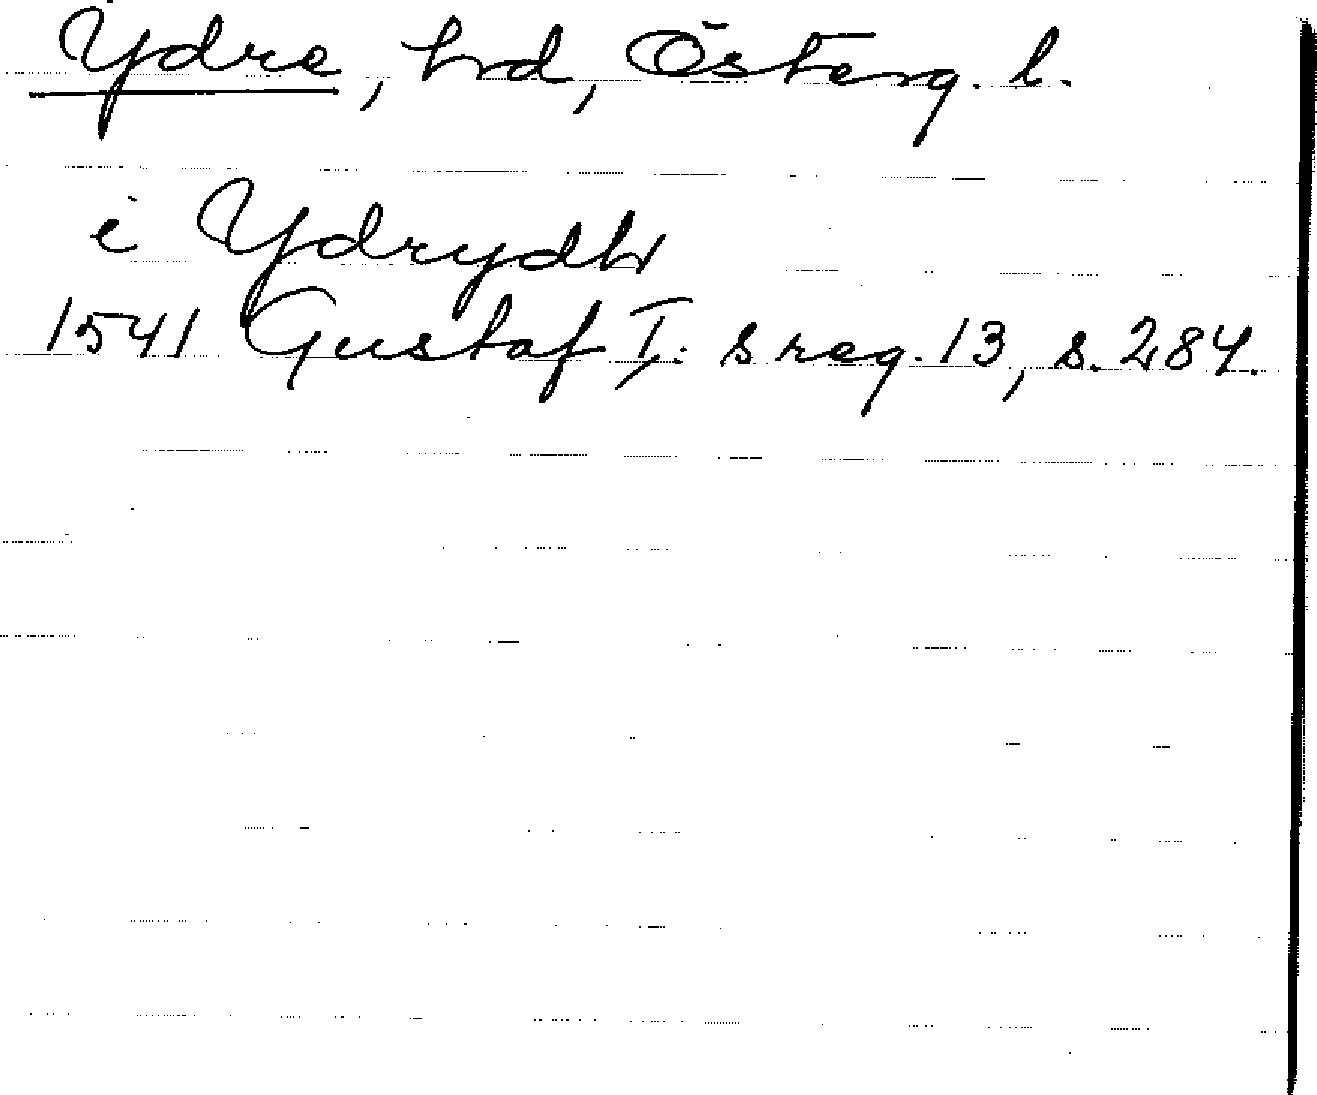 Ydre, hrd, Österg. l.
i Ydrydh
1541 Gustaf I:s reg. 13, s. 284.